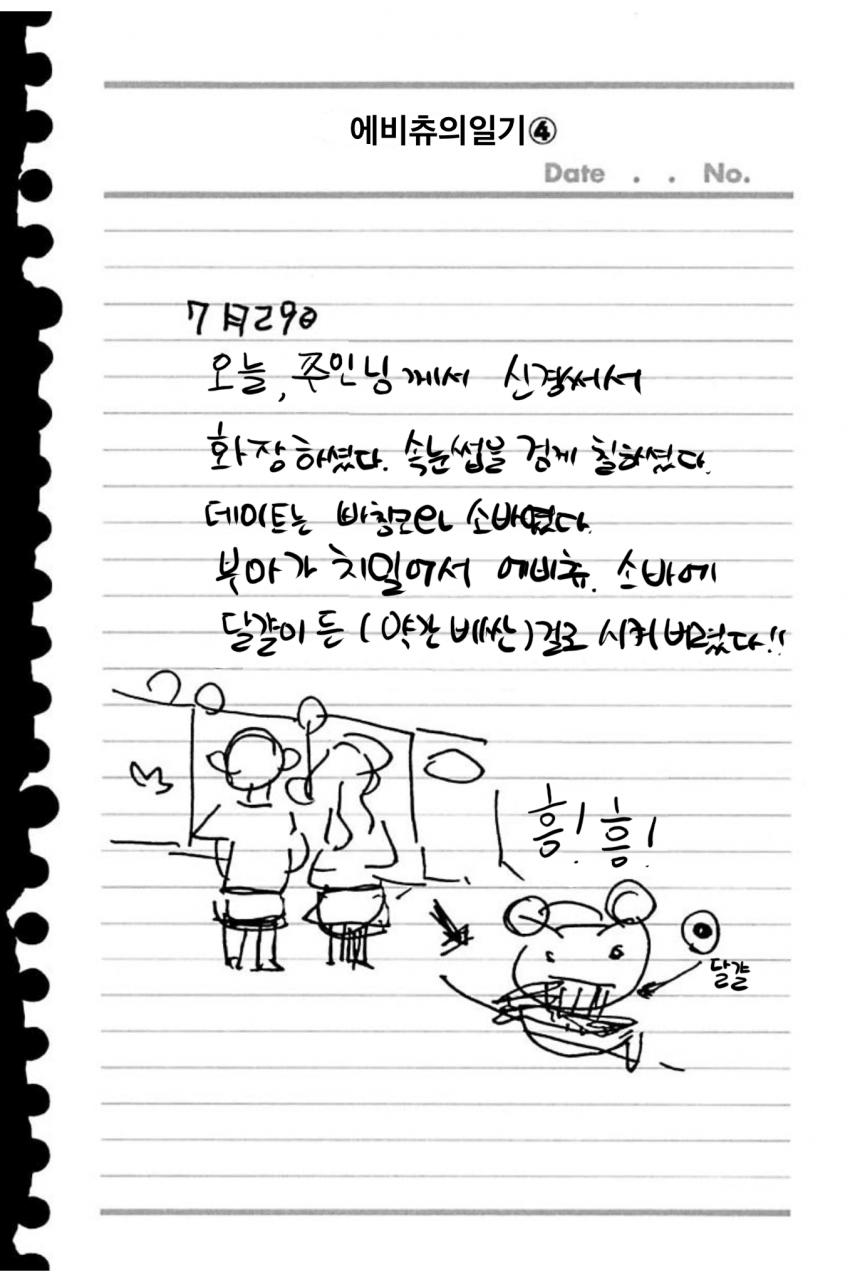 에비츄의일기④
Date . . No.
7月29日
오늘, 주인님께서 신경써서
화장하셨다. 속눈썹을 검게 칠하셨다.
데이트는 바침모에 소바였다.
부아가 치밀어서 에비츄. 소바에
달걀이 든 (약간 비싼)걸로 시켜버렸다!!
흠! 흠!
달걀